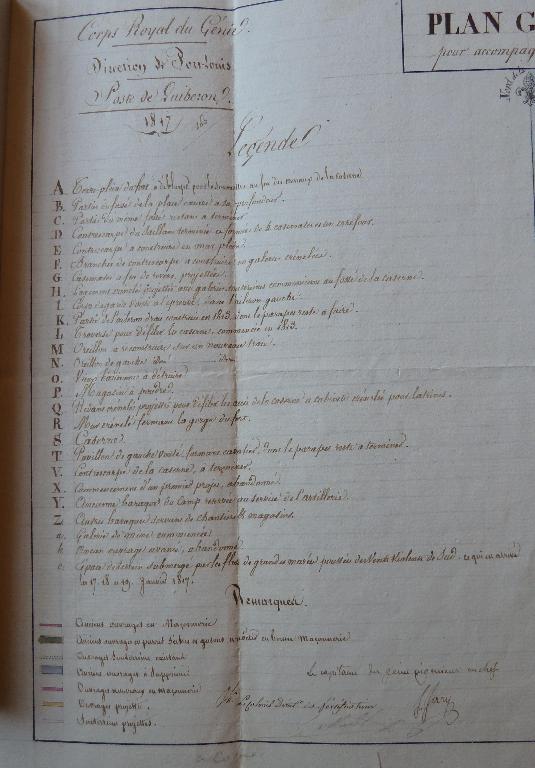 Corps Royal du Génie.
Direction de Port-Louis
Poste de Quiberon.
1817
PLAN G
pour accompag
Légende
A Terre plein du fort
B. Partie du fossé de la place creusée à sa profondeur.
C. Partie du même fossé restant à terminer
D Contrescarpe du Saillant terminée en forme de casemates en carrefour.
E Contrescarpe à construire en mur plein.
F. Branches de contrescarpe à construire en galerie crénelée.
G. Casemates à feu de revers, projettées.
H. crénelé projetté avec galerie souterraine communiquant au fossé de la caserne.
I. Corps de garde voûté à l'épreuve, dans l'aileron gauche.
K. Partie de l'aileron droit construit en 1813, dont le parapet reste à faire.
L Traverse pour défiler la caserne, commencée en 1813.
M Oreillon à reconstruire sur un nouveau tracé.
N. Oreillon de gauche idem idem
O. Vieux bâtiment à détruire
P. Magasin à poudre
Q. Redans crenelés projettés pour défiler les de la caserne à cabinets crénelés pour latrines.
R Mur crénelé fermant la gorge du fort.
S Caserne
T Pavillon de gauche voûté formant cavalier, dont le parapet reste à terminer.
V. Contrescarpe de la caserne, à
X. Commencement d'un premier projet, abandonné.
Y. Ancienne baraque du Camp reservée au service de l'artillerie.
Z Autres baraques servant de chantiers & magasins.
a. Galerie de mine commencée
b. Ancien ouvrage avancé, abandonné
c. Espace de terrain submergé par les flots de grandes marées poussées des Vents violents de Sud. ce qui est arrivé
les 17. 18 et 19. Janvier 1817.
Remarques.
Anciens ouvrages en Maçonnerie
Anciens ouvrages en en bonne Maçonnerie
Ouvrages Souterrains existant
Anciens ouvrages à Supprimer
Ouvrages nouveaux en maçonnerie
Ouvrages projettés.
Souterrains projettés.
Le capitaine du génie en chef
Le Colonel Direct. des fortifications